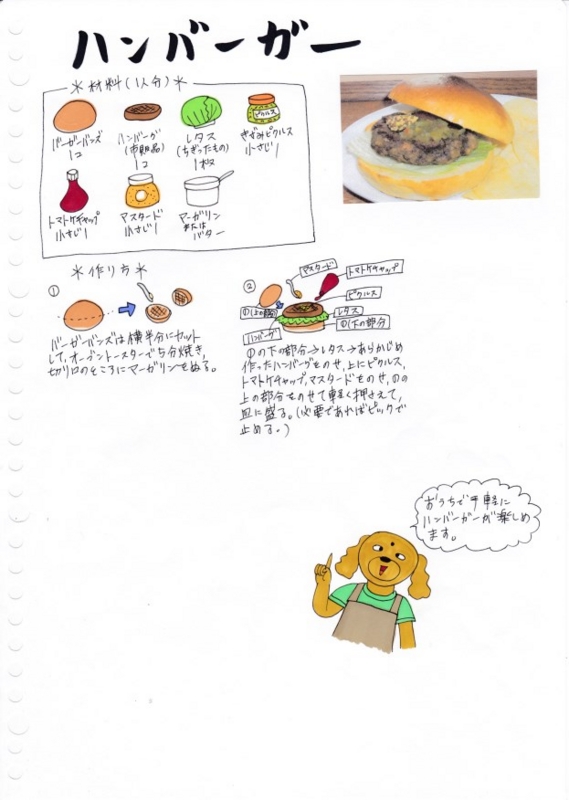 ハンバーガー
＊材料(1人分)＊
バーガーバンズ
1コ
ハンバーグ
(市販品)
1コ
レタス
(ちぎったもの)
1枚
ピクルス
きざみピクルス
小さじ1
トマトケチャップ
小さじ1
マスタード
小さじ1
マーガリン
または
バター
＊作り方＊
①
バーガーバンズは横半分にカット
して、オーブントースターで5分焼き、
切り口のところにマーガリンをぬる。
②
マスタード
トマトケチャップ
ピクルス
①(上の部分)
レタス
ハンバーグ
①(下の部分
①の下の部分→レタス→あらかじめ
作ったハンバーグをのせ、上にピクルス、
トマトケチャップ、マスタードをのせ、①の
上の部分をのせて軽く押さえて、
皿に盛る。(必要であればピックで
止める。)
おうちで手軽に
ハンバーガーが楽しめ
ます。